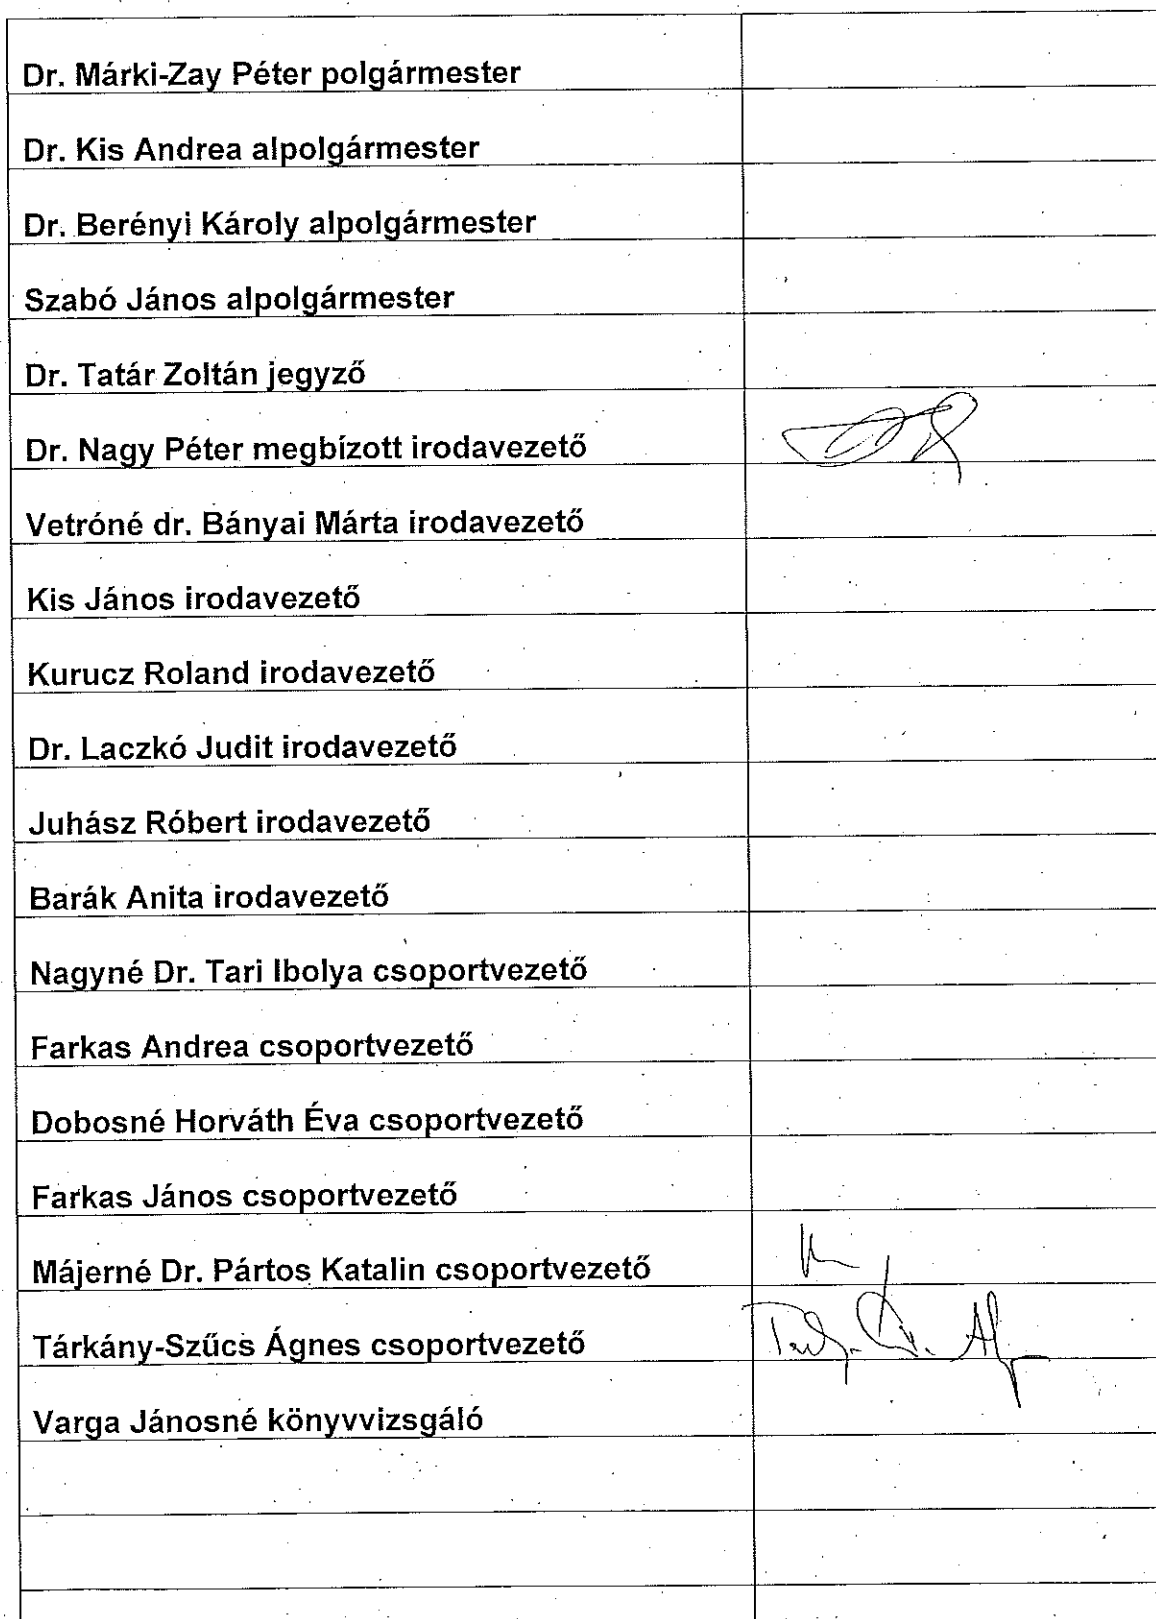 Dr. Márki-Zay Péter polgármester
Dr. Kis Andrea alpolgármester
Dr. Berényi Károly alpolgármester
Szabó János alpolgármester
Dr. Tatár Zoltán jegyző
Dr. Nagy Péter megbízott irodavezető
Vetróné dr. Bányai Márta irodavezető
Kis János irodavezető
Kurucz Roland irodavezető
Dr. Laczkó Judit irodavezető
Juhász Róbert irodavezető
Barák Anita irodavezető
Nagyné Dr. Tari Ibolya csoportvezető
Farkas Andrea csoportvezető
Dobosné Horváth Éva csoportvezető
Farkas János csoportvezető
Májerné Dr. Pártos Katalin csoportvezető
Tárkány-Szűcs Ágnes csoportvezető
Varga Jánosné könyvvizsgáló